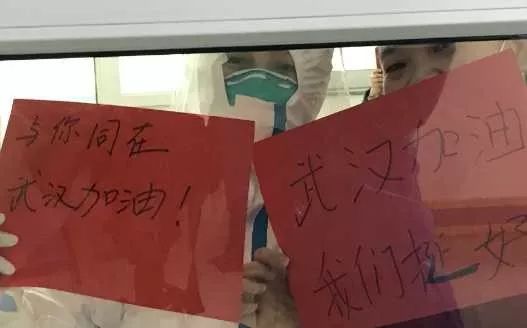 与你同在
武汉加油！
武汉加油
我们挺好